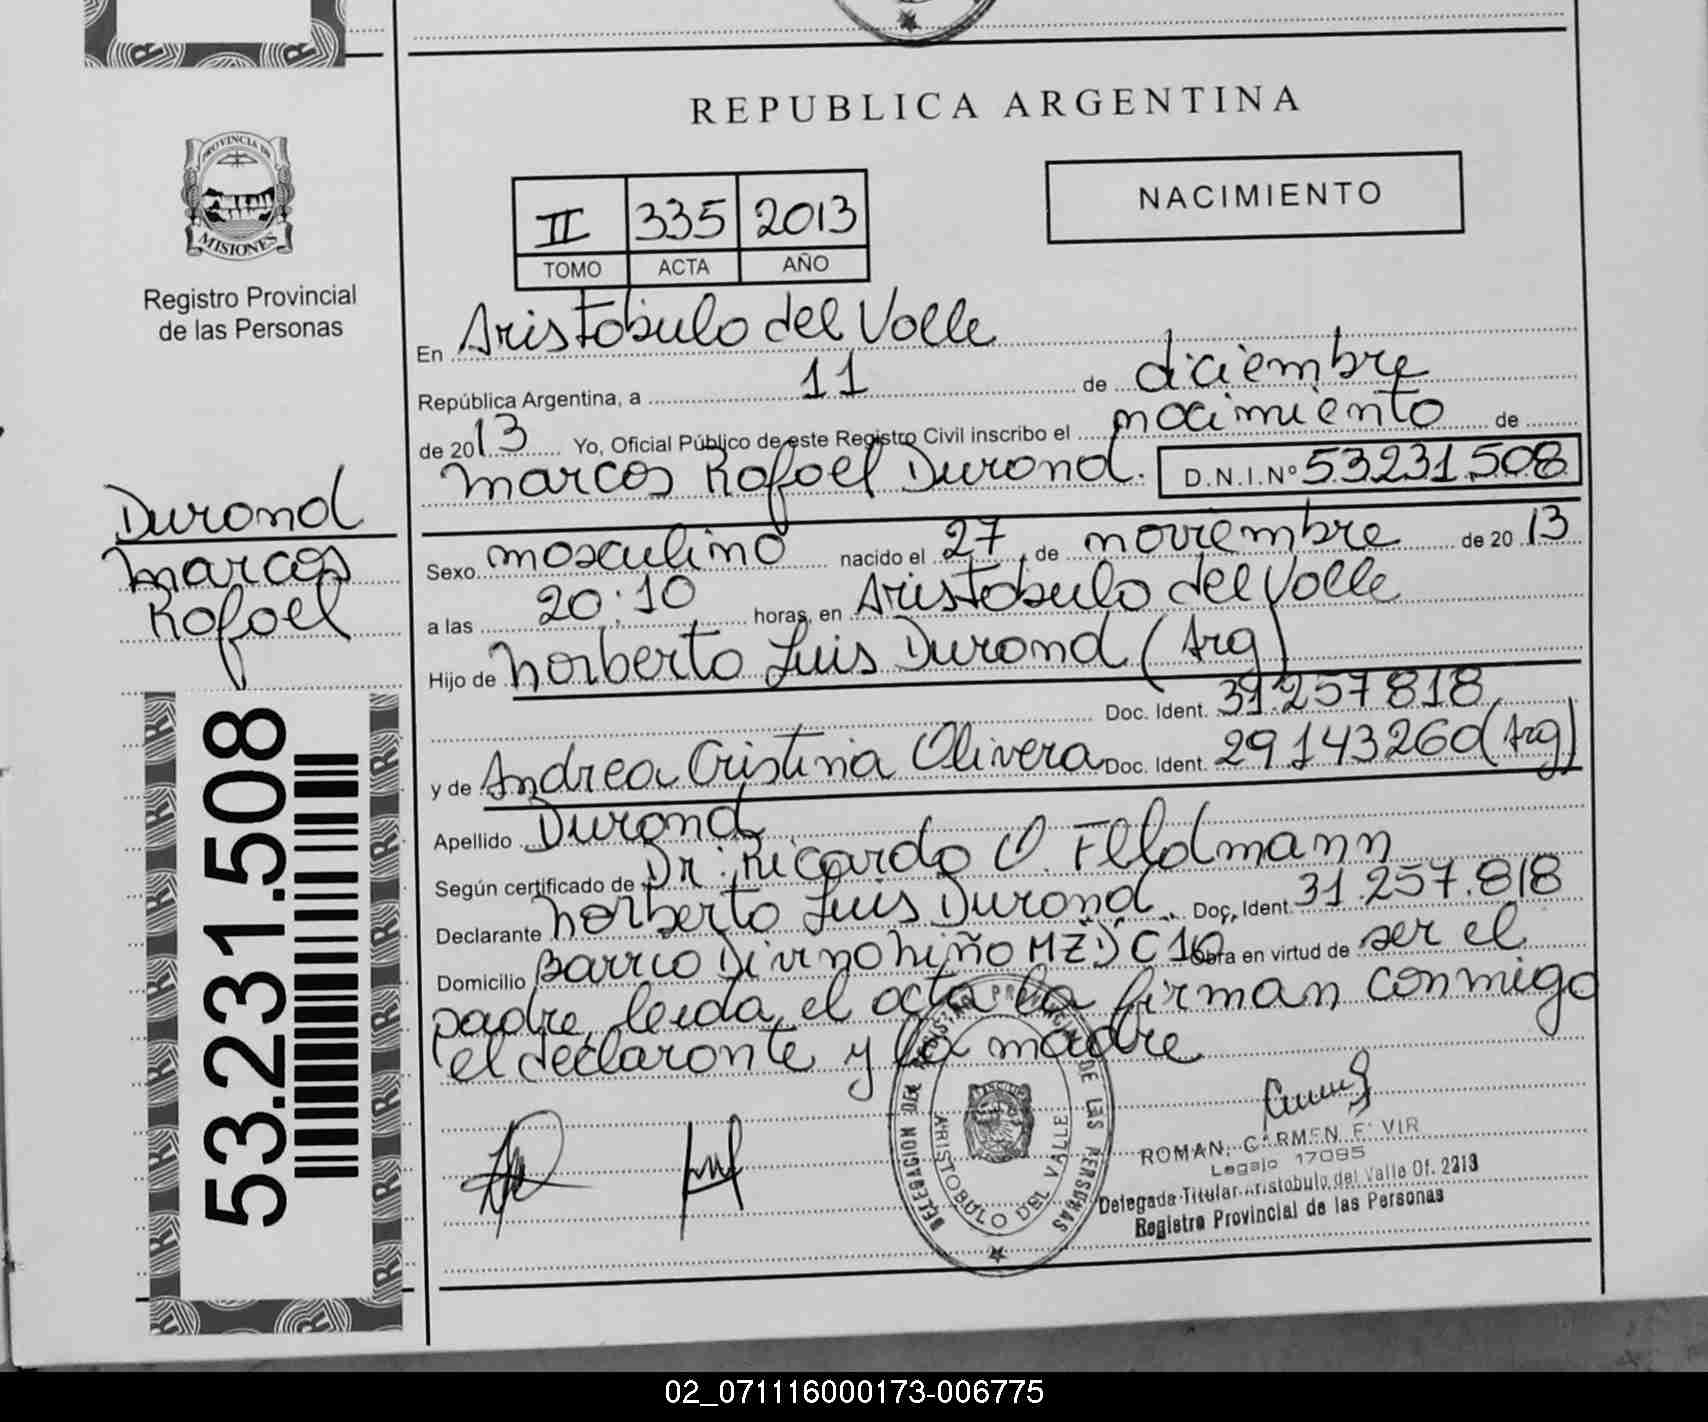 REPUBLICA ARGENTINA
PROVINCIA DE
MISIONES
Registro Provincial
de las Personas
II 335 2013
TOMO ACTA AÑO
NACIMIENTO
En Aristobulo del Valle
República Argentina, a 11 de diciembre
de 2013 Yo, Oficial Público de este Registro Civil inscribo el nacimiento de
Marcos Rafael Durand. D.N.I.Nº 53231.508
Durand
Marcos
Rafael
Sexo masculino nacido el 27 de noviembre de 2013
a las 20:10 horas, en Aristobulo del Valle
Hijo de Norberto Luis Durand (Arg)
Doc. Ident. 31.257818
y de Andrea Cristina Olivera Doc. Ident. 29143260 (Arg)
Apellido Durand
Según certificado de Dr. Ricardo O. Feldmann
Declarante Norberto Luis Durand Doc. Ident. 31.257.818
Domicilio Barrio Divino Niño MZ D C10 Obra en virtud de ser el
padre, leida el acta la firman conmigo
el declarante y la madre
53.231.508
DELEGACION DEL REGISTRO PROVINCIAL DE LAS PERSONAS
ARISTOBULO DEL VALLE
ROMAN, CARMEN E. VIR
Legajo 17095
Delegada Titular Aristobulo del Valle Of. 2213
Registro Provincial de las Personas
02_071116000173-006775